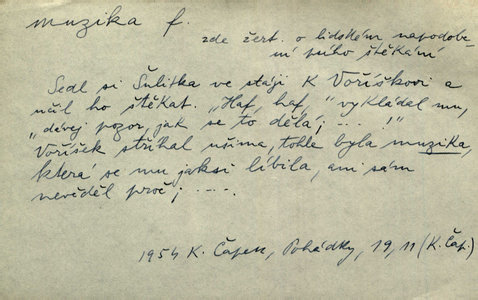 muzika f.
zde žert. o lidském napodobe-
ní psího štěkání
Sedl si Šulitka ve stáji k Voříškovi a
učil ho štěkat. „Haf, haf,“ vykládal mu,
„dávej pozor, jak se to dělá; ...!“
Voříšek stříhal ušima, tohle byla muzika,
která se mu jaksi líbila, ani sám
nevěděl proč; ....
1954 K. Čapek, Pohádky, 19, 11 (K. Čap.)